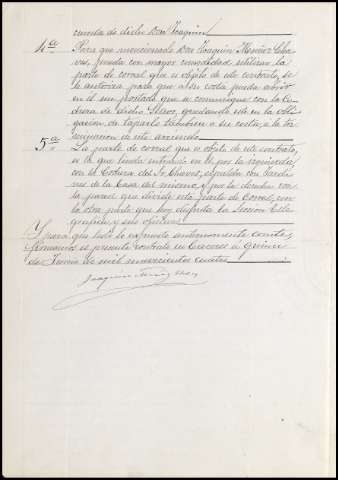 cuenta de dicho Don Joaquin
4ª Para que mencionado Don Joaquin Muñoz Cha-
ves, pueda con mayor comodidad utilizar la
parte de corral que es objeto de este contrato, se
le autoriza para que a su costa pueda abrir
en él un portado que se comunique con la Co-
chera de dicho Señor, quedando este en la obli-
gacion de taparlo tambien a su costa, a la ter-
minacion de este arriendo
5ª La parte de corral que es objeto de este contrato,
es la que linda entrando en él por la izquierda
con la Cochera del Sr. Chaves, espalda con Jardi-
nes de la Casa del mismo, y por la derecha con
la pared que divide esta parte de Corral, con
la otra parte que hoy disfruta la Seccion Tele-
grafica y sus oficinas
Y para que todo lo expuesto anteriormente conste,
firmamos el presente contrato en Caceres a quince
de Junio de mil novecientos cuatro
Joaquin Muñoz Chaves